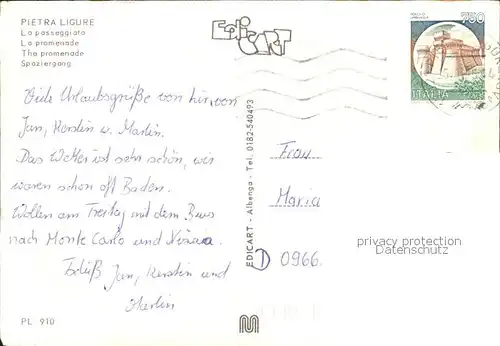 PIETRA LIGURE
La passeggiata
La promenade
The promenade
Spaziergang
Edi CART
750
ITALIA
Viele Urlaubsgrüße von hier von
Jan, Kerstin u. Martin.
Das Wetter ist sehr schön, wir
waren schon oft Baden.
Wollen am Freitag mit dem Bus
nach Monte Carlo und Nizza
Tschüß Jan, Kerstin und
Martin
PL 910
EDICART - Albenga - Tel. 0182-540493
Frau
Maria
D 0966.
privacy protection
Datenschutz